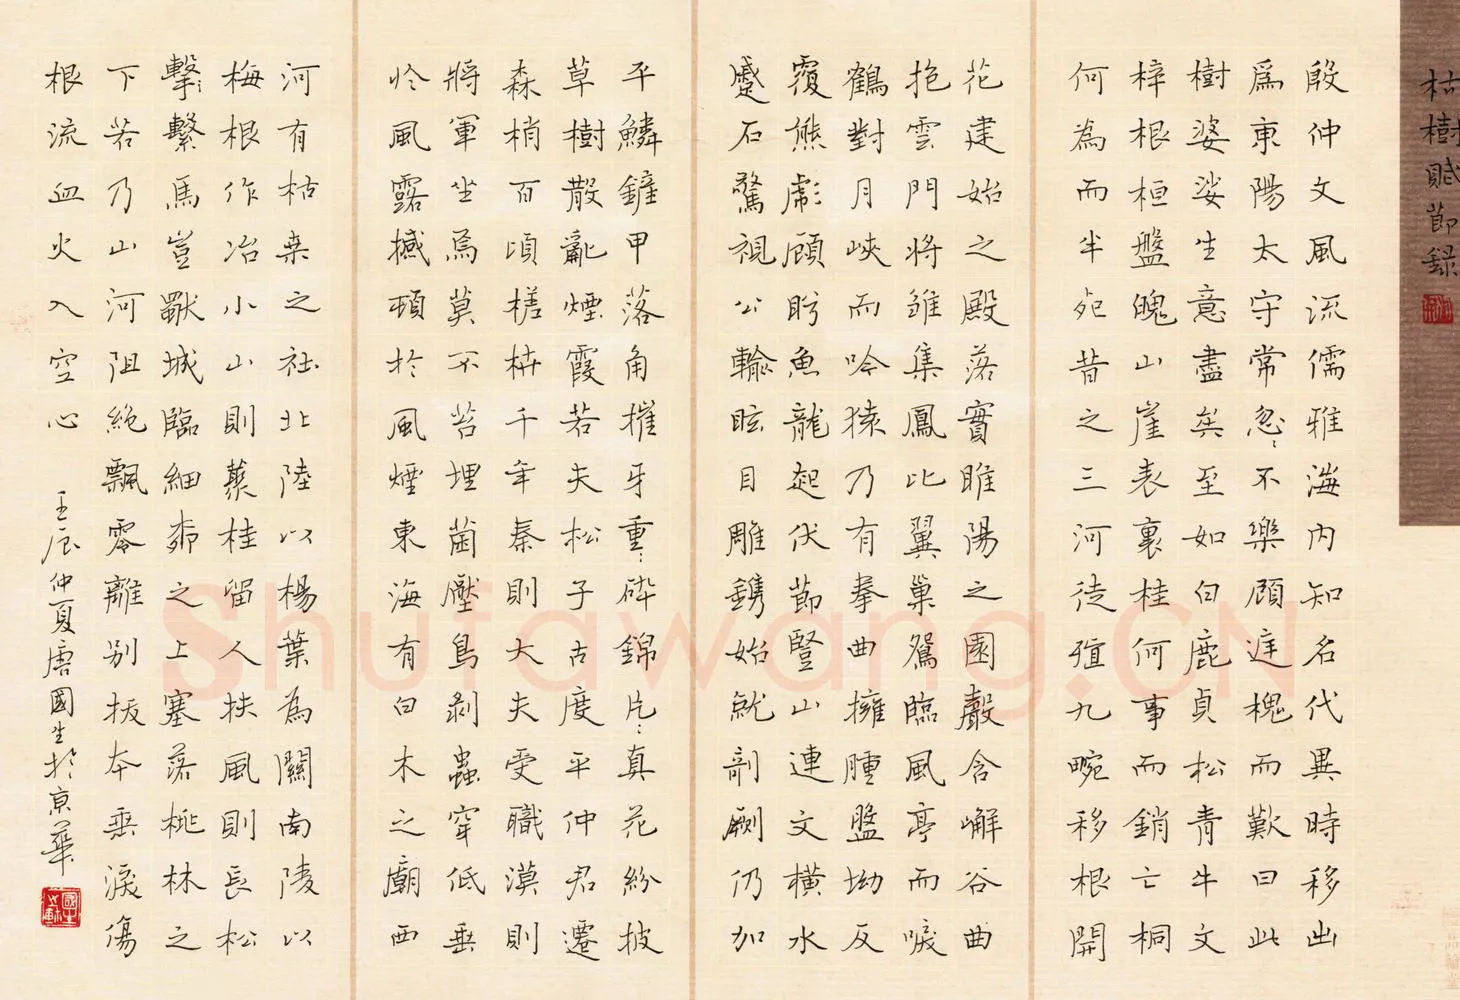 枯樹賦節録
殷仲文風流儒雅海内知名代異時移出
爲東陽太守常忽〻不樂顧庭槐而歎曰此
樹婆娑生意盡矣至如白鹿貞松青牛文
梓根柢盤魄山崖表裏桂何事而銷亡桐
何為而半死昔之三河徒殖九畹移根開
花建始之殿落實睢陽之園聲含嶰谷曲
抱雲門將雛集鳳比翼巢鴛臨風亭而唳
鶴對月峽而吟猿乃有拳曲擁腫盤坳反
覆熊彪顧盼魚龍起伏節豎山連文横水
蹙石驚視公輸眩目雕鐫始就剞劂仍加
平鱗鏟甲落角摧牙重〻碎錦片〻真花紛披
草樹散亂煙霞若夫松子古度平仲君遷
森梢百頃槎枿千年秦則大夫受職漢則
將軍坐焉莫不苔埋菌壓鳥剥蟲穿低垂
於風露撼頓於風煙東海有白木之廟西
河有枯桑之社北陸以楊葉為關南陵以
梅根作冶小山則藂桂留人扶風則長松
擊〻繫馬豈獨城臨細栁之上塞落桃林之
下若乃山河阻絶飄零離别拔本垂淚傷
根流血火入空心
壬辰仲夏唐國生於京華
Shufawang.CN